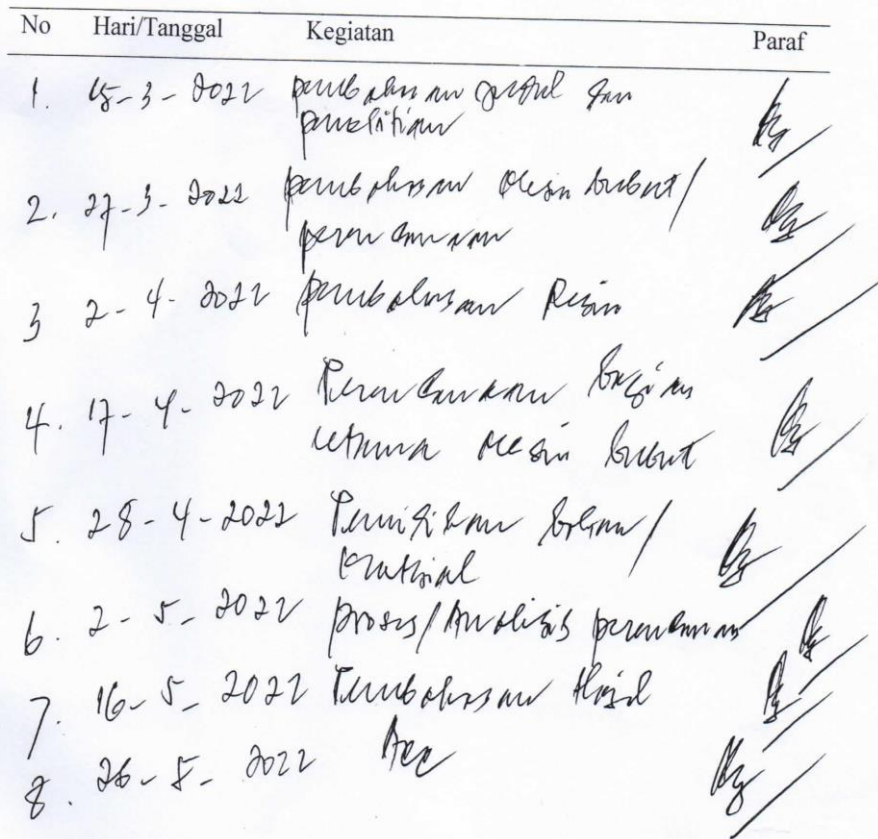 No Hari/Tanggal Kegiatan Paraf
1. 15-3-2022 pembahasan judul dan
penelitian
2. 27-3-2022 pembahasan mesin bubut/
perencanaan
3 2-4-2022 pembahasan Desain
4. 17-4-2022 Perencanaan bagian
utama mesin bubut
5. 28-4-2022 Pemilihan bahan/
material
6. 2-5-2022 proses/Analisis perencanaan
7. 16-5-2022 Pembahasan Hasil
8. 26-5-2022 Acc